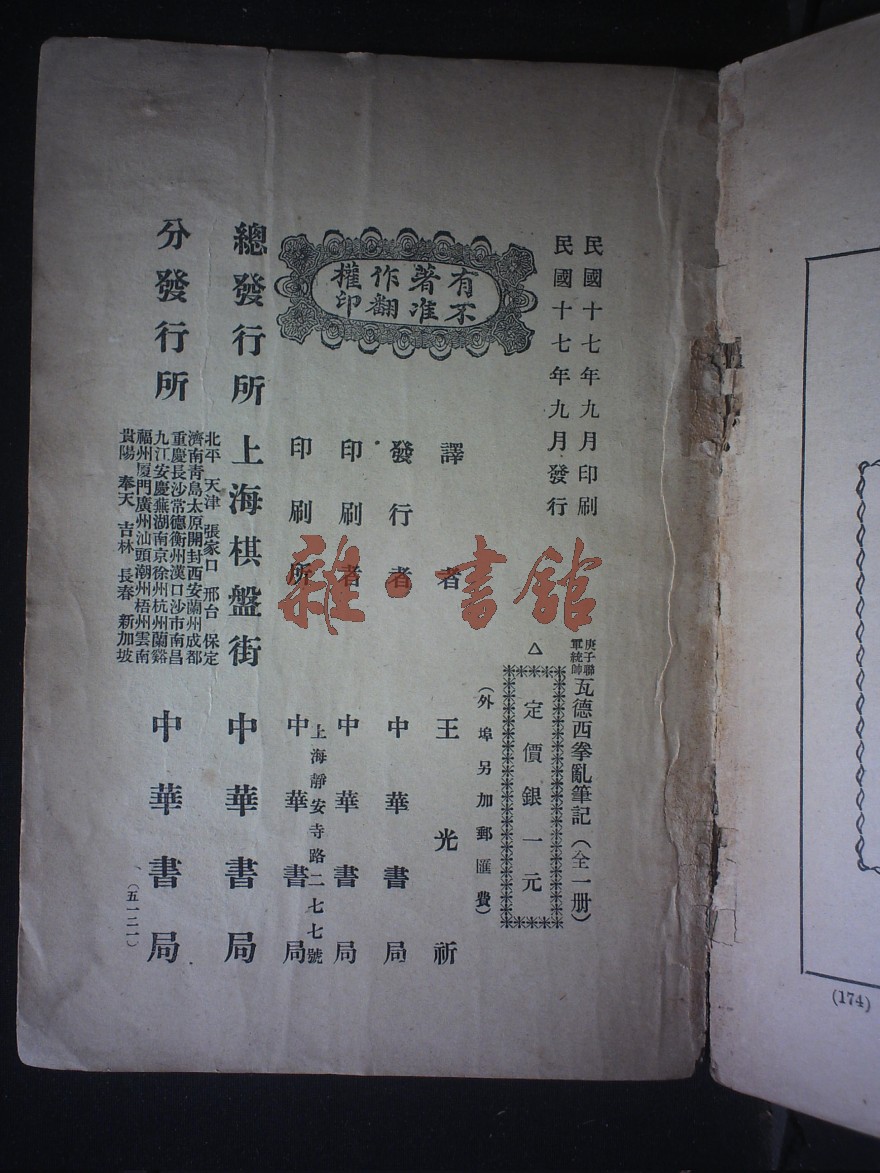 民國十七年九月印刷
民國十七年九月發行
庚子聯
軍統帥
瓦德西拳亂筆記(全一册)
△
定價銀一元
(外埠另加郵匯費)
有著作權
不准翻印
譯者 王光祈
發行者 中華書局
印刷者 中華書局
上海靜安寺路二七七號
印刷所 中華書局
總發行所 上海棋盤街 中華書局
分發行所 中華書局
北平 天津 張家口 邢台 保定
濟南青島太原開封西安蘭州成都
重慶長沙常德衡州漢口沙市南昌
九江安慶蕪湖南京徐州杭州蘭谿
福州厦門廣州汕頭潮州梧州雲南
貴陽 奉天 吉林 長春 新加坡
(五一二一)
雜·書館
(174)